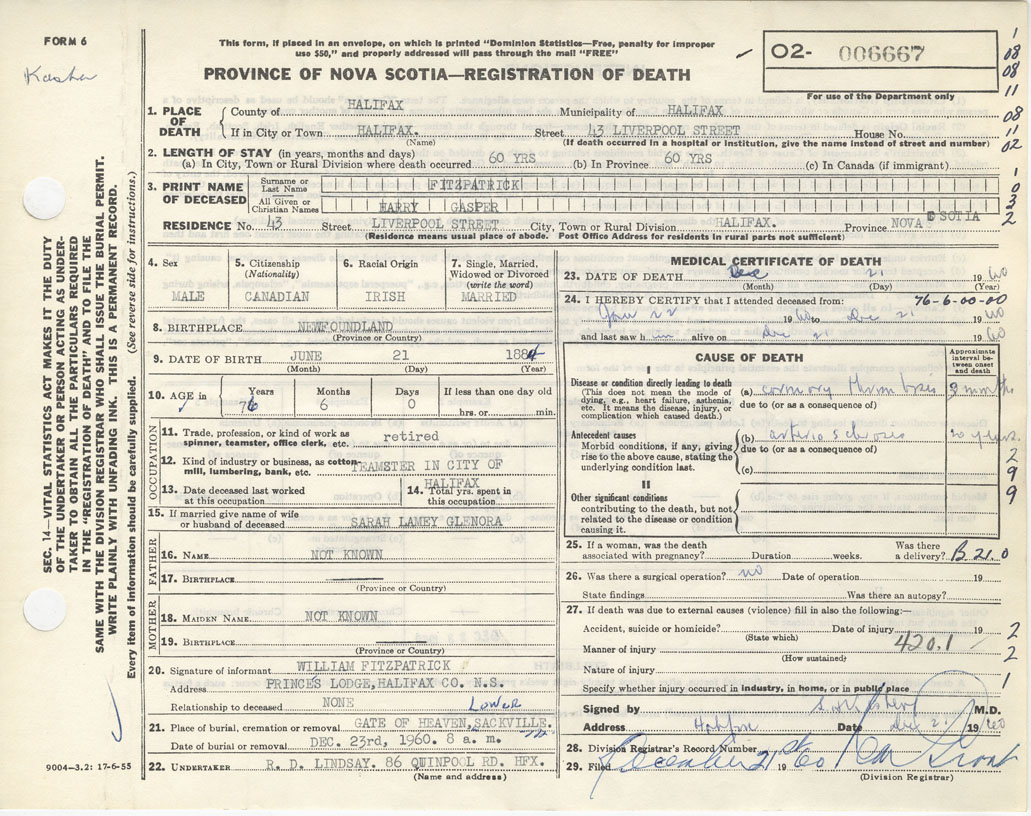 FORM 6
This form, if placed in an envelope, on which is printed "Dominion Statistics—Free, penalty for improper
use $50," and properly addressed will pass through the mail "FREE"
PROVINCE OF NOVA SCOTIA—REGISTRATION OF DEATH
02- 006667
For use of the Department only
1
08
08
11
08
11
02
1
0
3
2
1. PLACE OF DEATH
County of HALIFAX Municipality of HALIFAX
If in City or Town HALIFAX. Street 43 LIVERPOOL STREET House No.
(Name) (If death occurred in a hospital or institution, give the name instead of street and number)
2. LENGTH OF STAY (in years, months and days)
(a) In City, Town or Rural Division where death occurred 60 YRS (b) In Province 60 YRS (c) In Canada (if immigrant)
3. PRINT NAME OF DECEASED
Surname or Last Name FITZPATRICK
All Given or Christian Names HARRY GASPER
RESIDENCE No. 43 Street LIVERPOOL STREET City, Town or Rural Division HALIFAX. Province NOVA SCOTIA
(Residence means usual place of abode. Post Office Address for residents in rural parts not sufficient)
SEC. 14—VITAL STATISTICS ACT MAKES IT THE DUTY
OF THE UNDERTAKER OR PERSON ACTING AS UNDER-
TAKER TO OBTAIN ALL THE PARTICULARS REQUIRED
IN THE "REGISTRATION OF DEATH" AND TO FILE THE
SAME WITH THE DIVISION REGISTRAR WHO SHALL ISSUE THE BURIAL PERMIT.
WRITE PLAINLY WITH UNFADING INK. THIS IS A PERMANENT RECORD.
Every item of information should be carefully supplied. (See reverse side for instructions.)
4. Sex
MALE
5. Citizenship
(Nationality)
CANADIAN
6. Racial Origin
IRISH
7. Single, Married,
Widowed or Divorced
(write the word)
MARRIED
8. BIRTHPLACE NEWFOUNDLAND
(Province or Country)
9. DATE OF BIRTH JUNE 21 1884
(Month) (Day) (Year)
10. AGE in Years Months Days If less than one day old
76 6 0 hrs. or min.
OCCUPATION
11. Trade, profession, or kind of work as
spinner, teamster, office clerk, etc. retired
12. Kind of industry or business, as cotton
mill, lumbering, bank, etc. TEAMSTER IN CITY OF
HALIFAX
13. Date deceased last worked
at this occupation
14. Total yrs. spent in
this occupation
15. If married give name of wife
or husband of deceased SARAH LAMEY GLENORA
FATHER
16. NAME NOT KNOWN
17. BIRTHPLACE
(Province or Country)
MOTHER
18. MAIDEN NAME NOT KNOWN
19. BIRTHPLACE
(Province or Country)
20. Signature of informant WILLIAM FITZPATRICK
Address PRINCES LODGE,HALIFAX CO. N.S.
Relationship to deceased NONE
Lower
21. Place of burial, cremation or removal GATE OF HEAVEN,SACKVILLE.
Date of burial or removal DEC. 23rd, 1960. 8 a. m.
22. UNDERTAKER R. D. LINDSAY. 86 QUINPOOL RD. HFX.
(Name and address)
9004—3.2: 17-6-55
MEDICAL CERTIFICATE OF DEATH
23. DATE OF DEATH Dec 21 1960
(Month) (Day) (Year)
24. I HEREBY CERTIFY that I attended deceased from: 76-6-00-00
22 1960 to Dec 21 1960
and last saw him alive on Dec 21 1960
CAUSE OF DEATH
Approximate
interval be-
tween onset
and death
I
Disease or condition directly leading to death
(This does not mean the mode of
dying, e.g., heart failure, asthenia,
etc. It means the disease, injury, or
complication which caused death.)
(a) coronary thrombosis 3 months
due to (or as a consequence of)
Antecedent causes
Morbid conditions, if any, giving
rise to the above cause, stating the
underlying condition last.
(b) years.
due to (or as a consequence of)
(c)
2
9
9
II
Other significant conditions
contributing to the death, but not
related to the disease or condition
causing it.
25. If a woman, was the death
associated with pregnancy? Duration weeks. Was there
a delivery? B.21.0
26. Was there a surgical operation? no Date of operation 19
State findings Was there an autopsy?
27. If death was due to external causes (violence) fill in also the following:—
Accident, suicide or homicide? Date of injury 19
(State which)
Manner of injury 420.1
(How sustained?)
Nature of injury
Specify whether injury occurred in industry, in home, or in public place
2
2
1
Signed by M.D.
Address Date Dec 21 1960
28. Division Registrar's Record Number
29. Filed December 21st 1960
(Division Registrar)